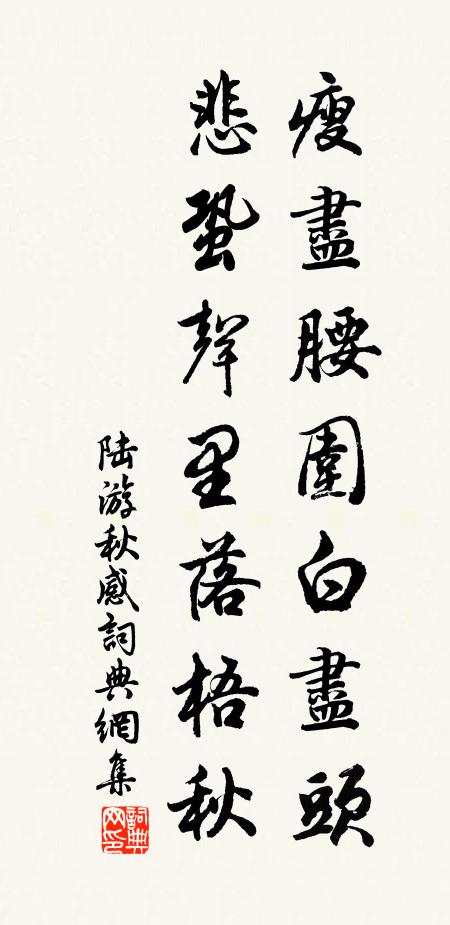 瘦盡腰圍白盡頭
悲蛩聲里落梧秋
陆游秋感詞典網集
詞典網印